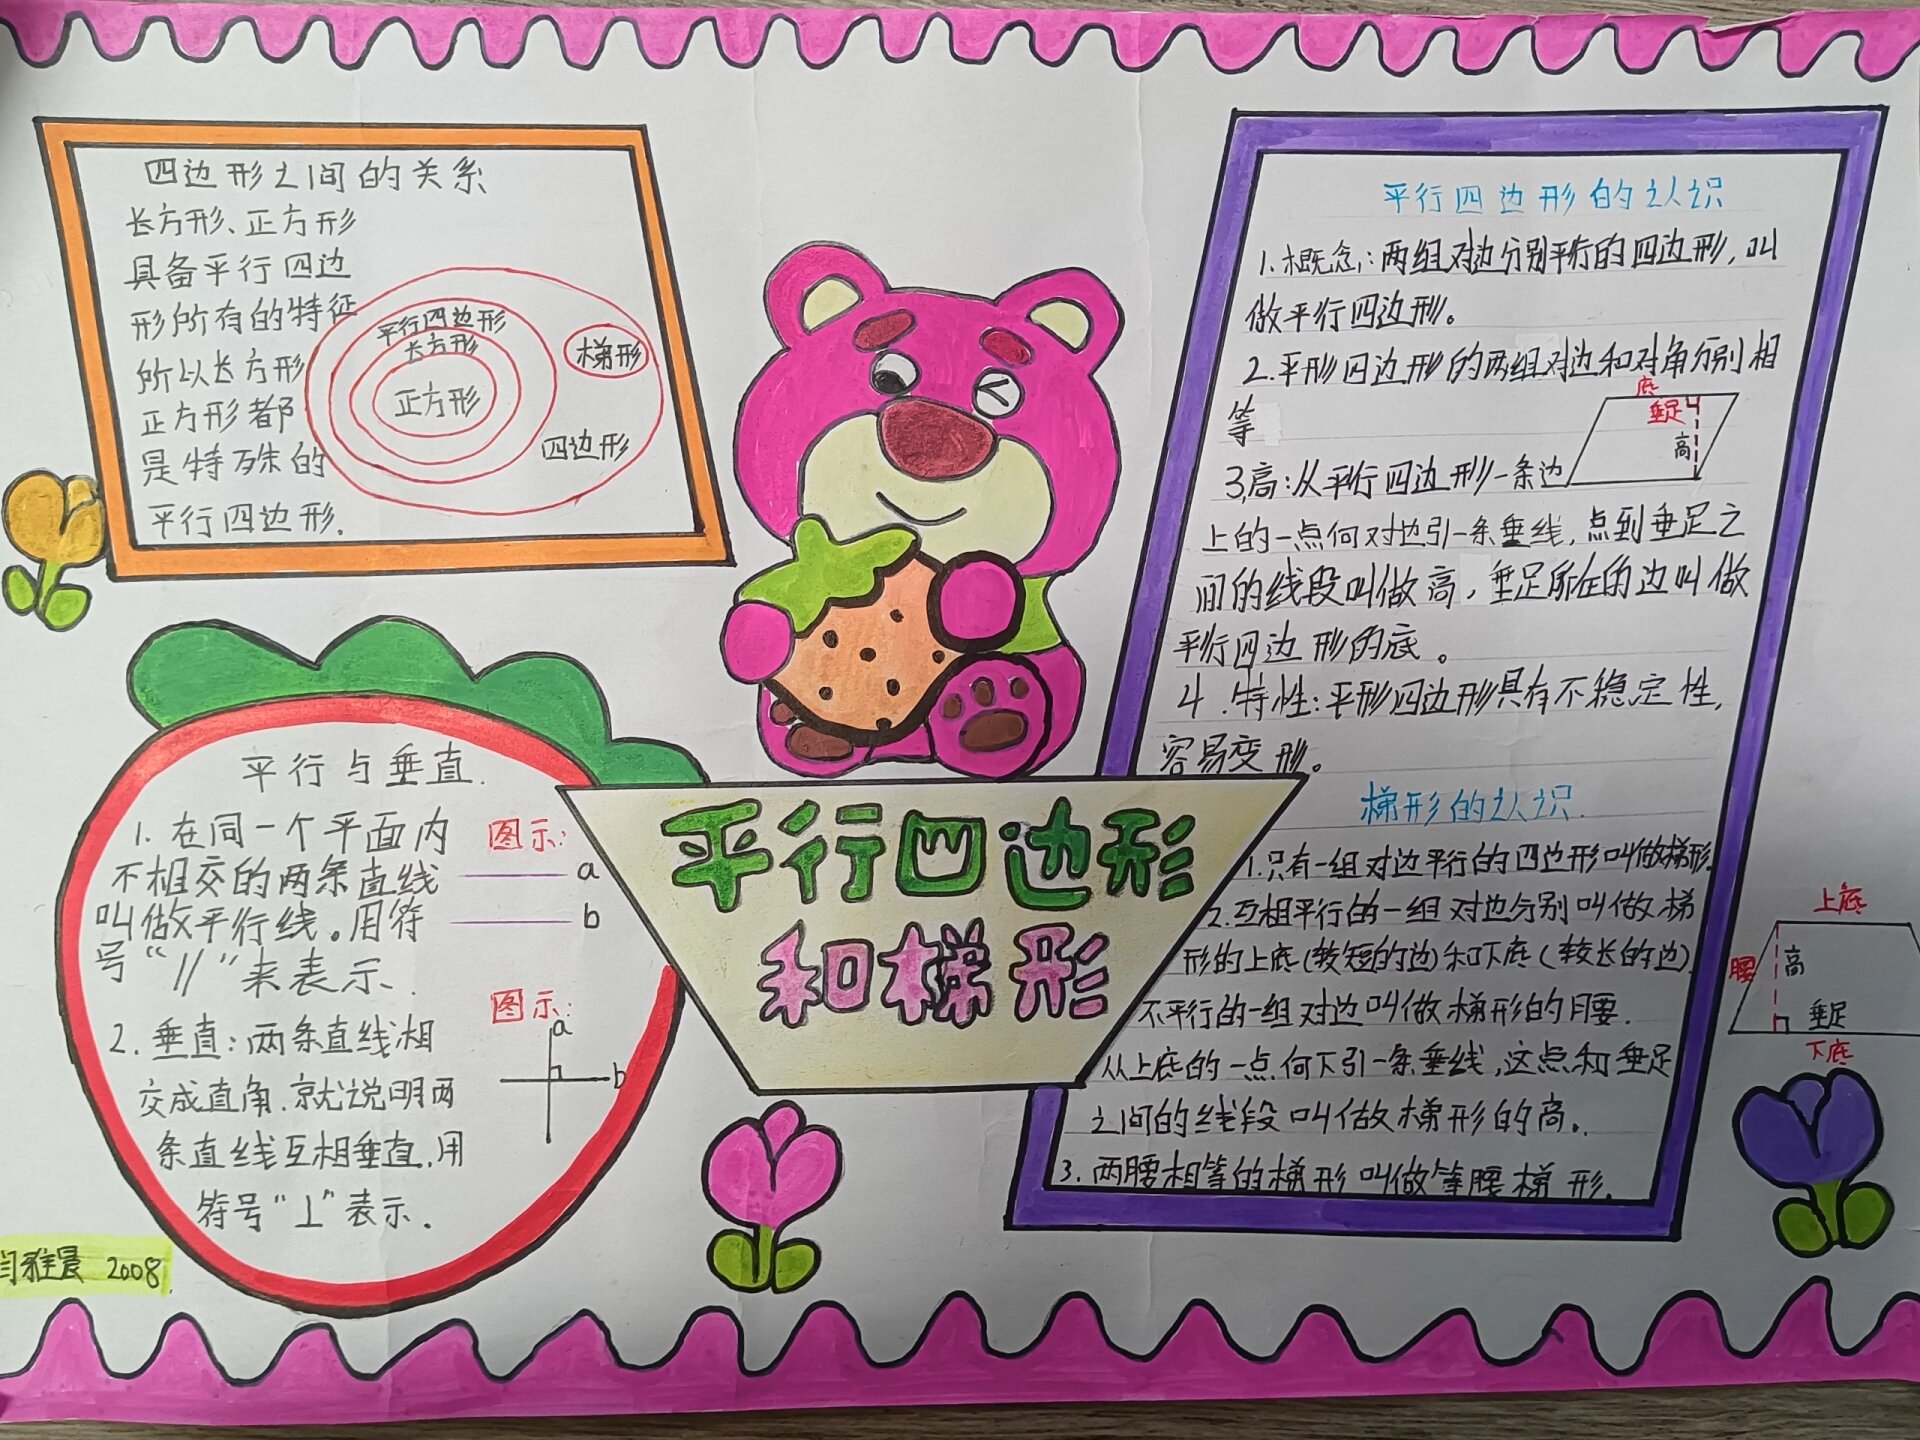 四边形之间的关系
长方形、正方形
具备平行四边
形所有的特征
所以长方形
正方形都
是特殊的
平行四边形.
平行四边形
长方形
正方形
梯形
四边形
平行与垂直.
1. 在同一个平面内
不相交的两条直线
叫做平行线。用符
号“//”来表示.
图示:
a
b
2. 垂直:两条直线相
交成直角.就说明两
条直线互相垂直.用
符号“⊥”表示.
图示:
a
b
雅晨 2008
平行四边形
和梯形
平行四边形的认识
1.概念:两组对边分别平行的四边形,叫
做平行四边形。
2.平形四边形的两组对边和对角分别相
等
底
垂足
高
3,高:从平行四边形一条边
上的一点何对边引一条垂线,点到垂足之
间的线段叫做高,垂足所在的边叫做
平行四边形的底。
4.特性:平形四边形具有不稳定性,
容易变形。
梯形的认识.
1.只有一组对边平行的四边形叫做梯形.
2.互相平行的一组对边分别叫做梯
形的上底(较短的边)和下底(较长的边).
不平行的一组对边叫做梯形的腰.
从上底的一点何下引一条垂线,这点和垂足
之间的线段叫做梯形的高.
3.两腰相等的梯形叫做等腰梯形.
上底
腰
高
垂足
下底